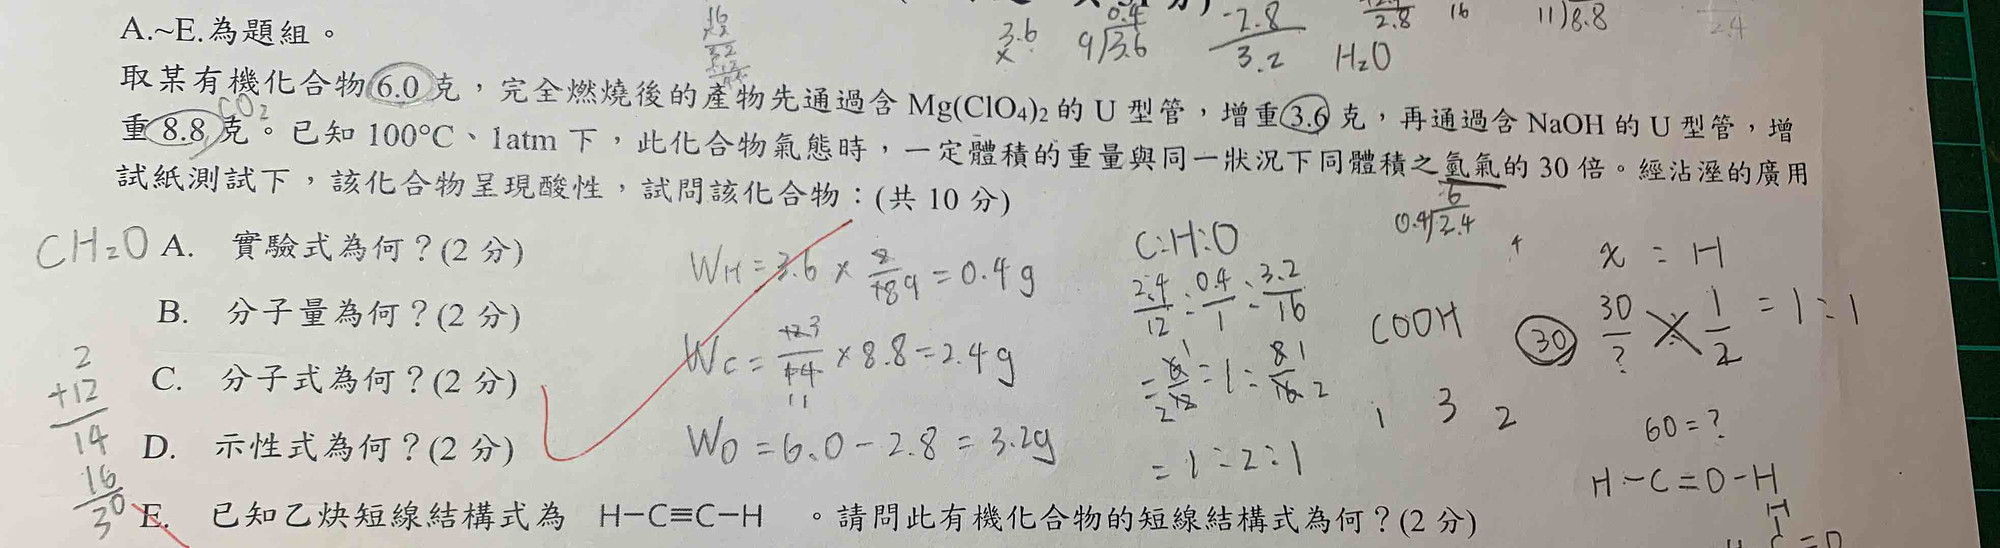 A.~E.為題組。
3.6
×
0.4
9)3.6
-2.8
3.2
2.8
16
H₂O
11)8.8
2.4
取某有機化合物6.0克,完全燃燒後的產物先通過含 Mg(ClO₄)₂ 的 U 型管,增重3.6克,再通過含 NaOH 的 U 型管,增
CO₂
重8.8克。已知 100°C、1atm 下,此化合物氣態時,一定體積的重量與同一狀況下同體積之氫氣的 30 倍。經沾溼的廣用
試紙測試下,該化合物呈現酸性,試問該化合物:(共 10 分)
6
0.4)2.4
CH₂O A. 實驗式為何?(2 分)
B. 分子量為何?(2 分)
C. 分子式為何?(2 分)
D. 示性式為何?(2 分)
E. 已知乙炔短線結構式為 H−C≡C−H 。請問此有機化合物的短線結構式為何?(2 分)
2
+12
14
16
30
W_H = 3.6 × 2/18 9 = 0.4 g
W_C = 12 3/44 11 × 8.8 = 2.4 g
W_O = 6.0 − 2.8 = 3.2g
C:H:O
2.4/12 : 0.4/1 : 3.2/16
= 1:2:1
COOH
1 3 2
x : H
30 30/? × 1/2 = 1:1
60=?
H−C=O−H
H
C=O